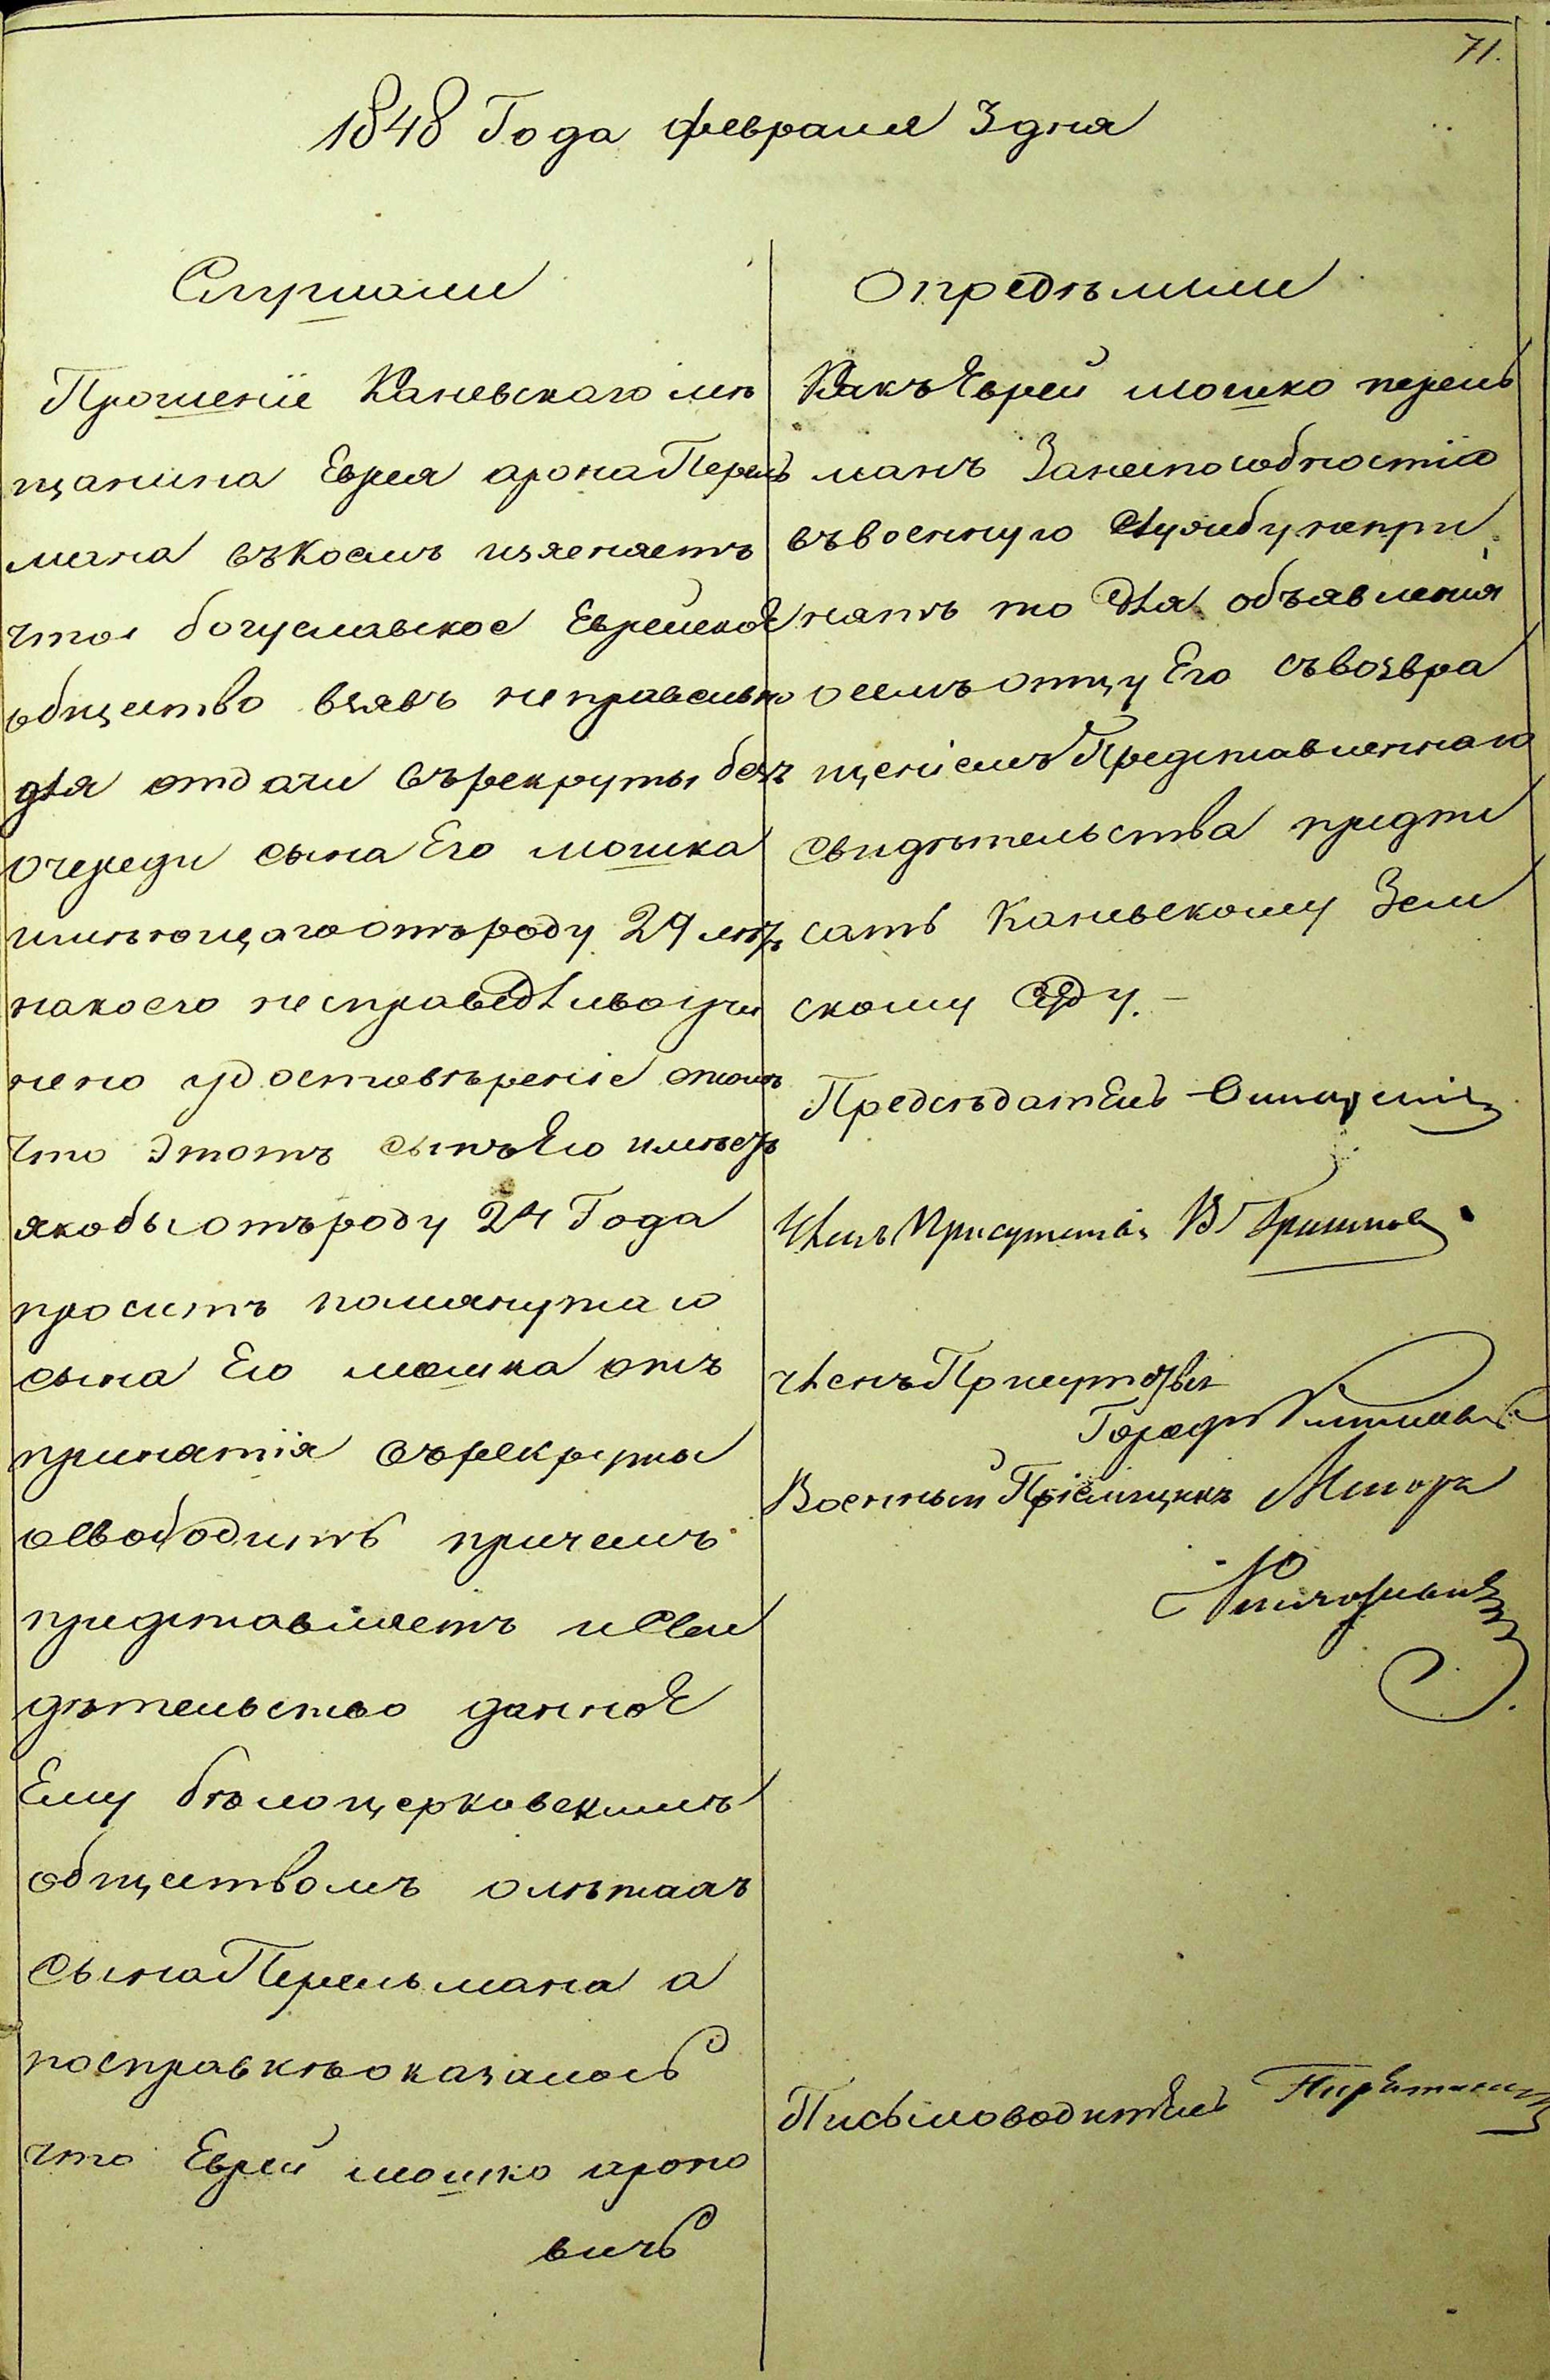 71.
1848 Года февраля 3 дня
Слушали
Прошеніе Каневскаго мѣ
щанина Еврея арона Перель
мана въ коемъ изясняетъ
что богуславское Еврейское
общество взявъ неправельно
для отдачи въ рекруты безъ
очереди сына Его мошка
имѣющаго отъ роду 29 лѣтъ
на коего несправедливо учи
нено удостовѣреніе отомъ
что этотъ сынъ Его имѣетъ
якобы отъ роду 24 Года
проситъ помянутаго
сына Его мошка отъ
принятія въ рекруты
освободить причемъ
представляетъ и Сви
дѣтельство данное
Ему бѣлоцерковскимъ
обществомъ о лѣтахъ
сына Перельмана а
по справкѣ оказалось
что Еврей мошко ароно
вичь
Опредѣлили
Какъ Еврей мошко перель
манъ За неспособностію
въ военную Службу непри
нятъ то для объявленія
о семъ отцу Его съ возвра
щеніемъ Представленнаго
Свидѣтельства предпи
сать Каневскому Зем
скому Суду. -
Предсѣдатель
Членъ Присутствія В
Членъ Присутствія
Военный Пріемщикъ Маіоръ
Письмоводитель